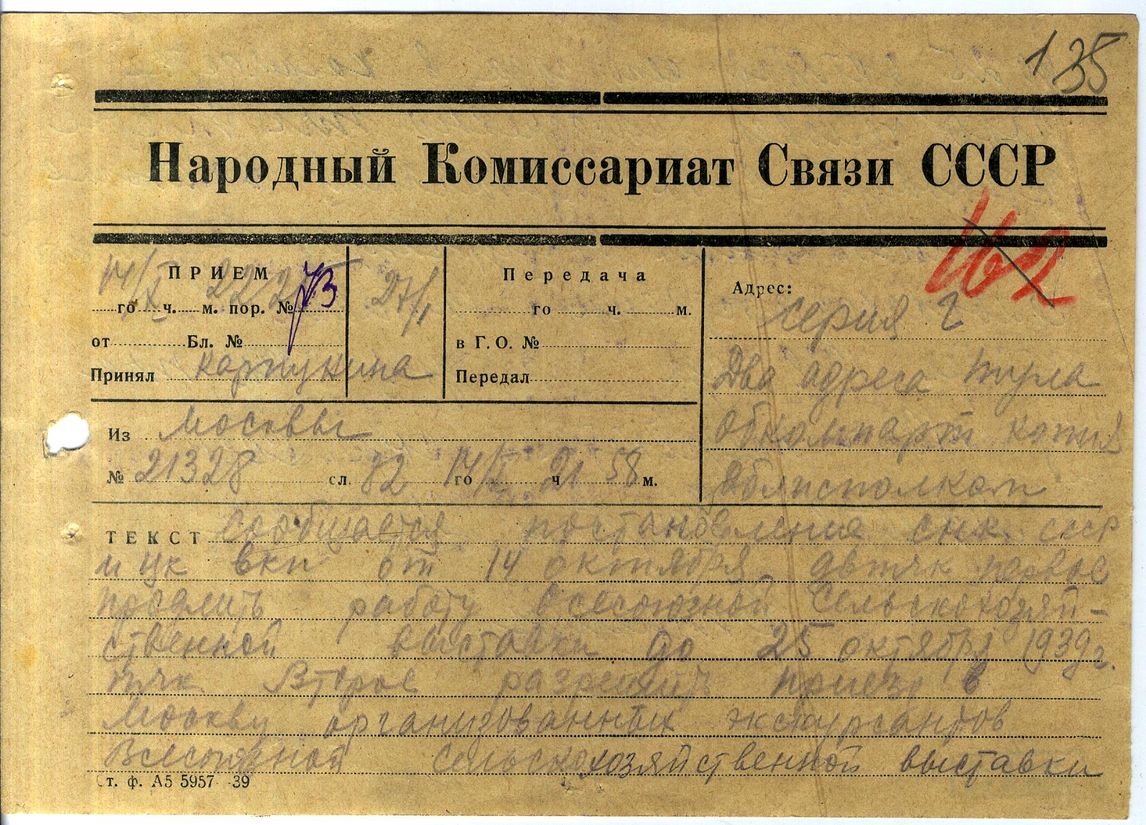 135
Народный Комиссариат Связи СССР
162
ПРИЕМ
14/X 222
73
27/1
го ч. м. пор. №
от Бл. №
Принял Карпухина
Передача
го ч. м.
в Г. О. №
Передал
Адрес:
серия Г
Два адреса Тула
Обкомпарт копия
Облисполком
Из Москвы
№ 21328 сл 82 14/X го 21 ч 58 м.
ТЕКСТ Сообщается постановление снк ссср
и цк вкп от 14 октября двтчк первое
продлить работу Всесоюзной Сельскохозяй-
ственной выставки до 25 октября 1939 г.
тчк Второе разрешить приезд в
Москву организованных экскурсантов
Всесоюзной сельскохозяйственной выставки
т. ф. А5 5957 -39